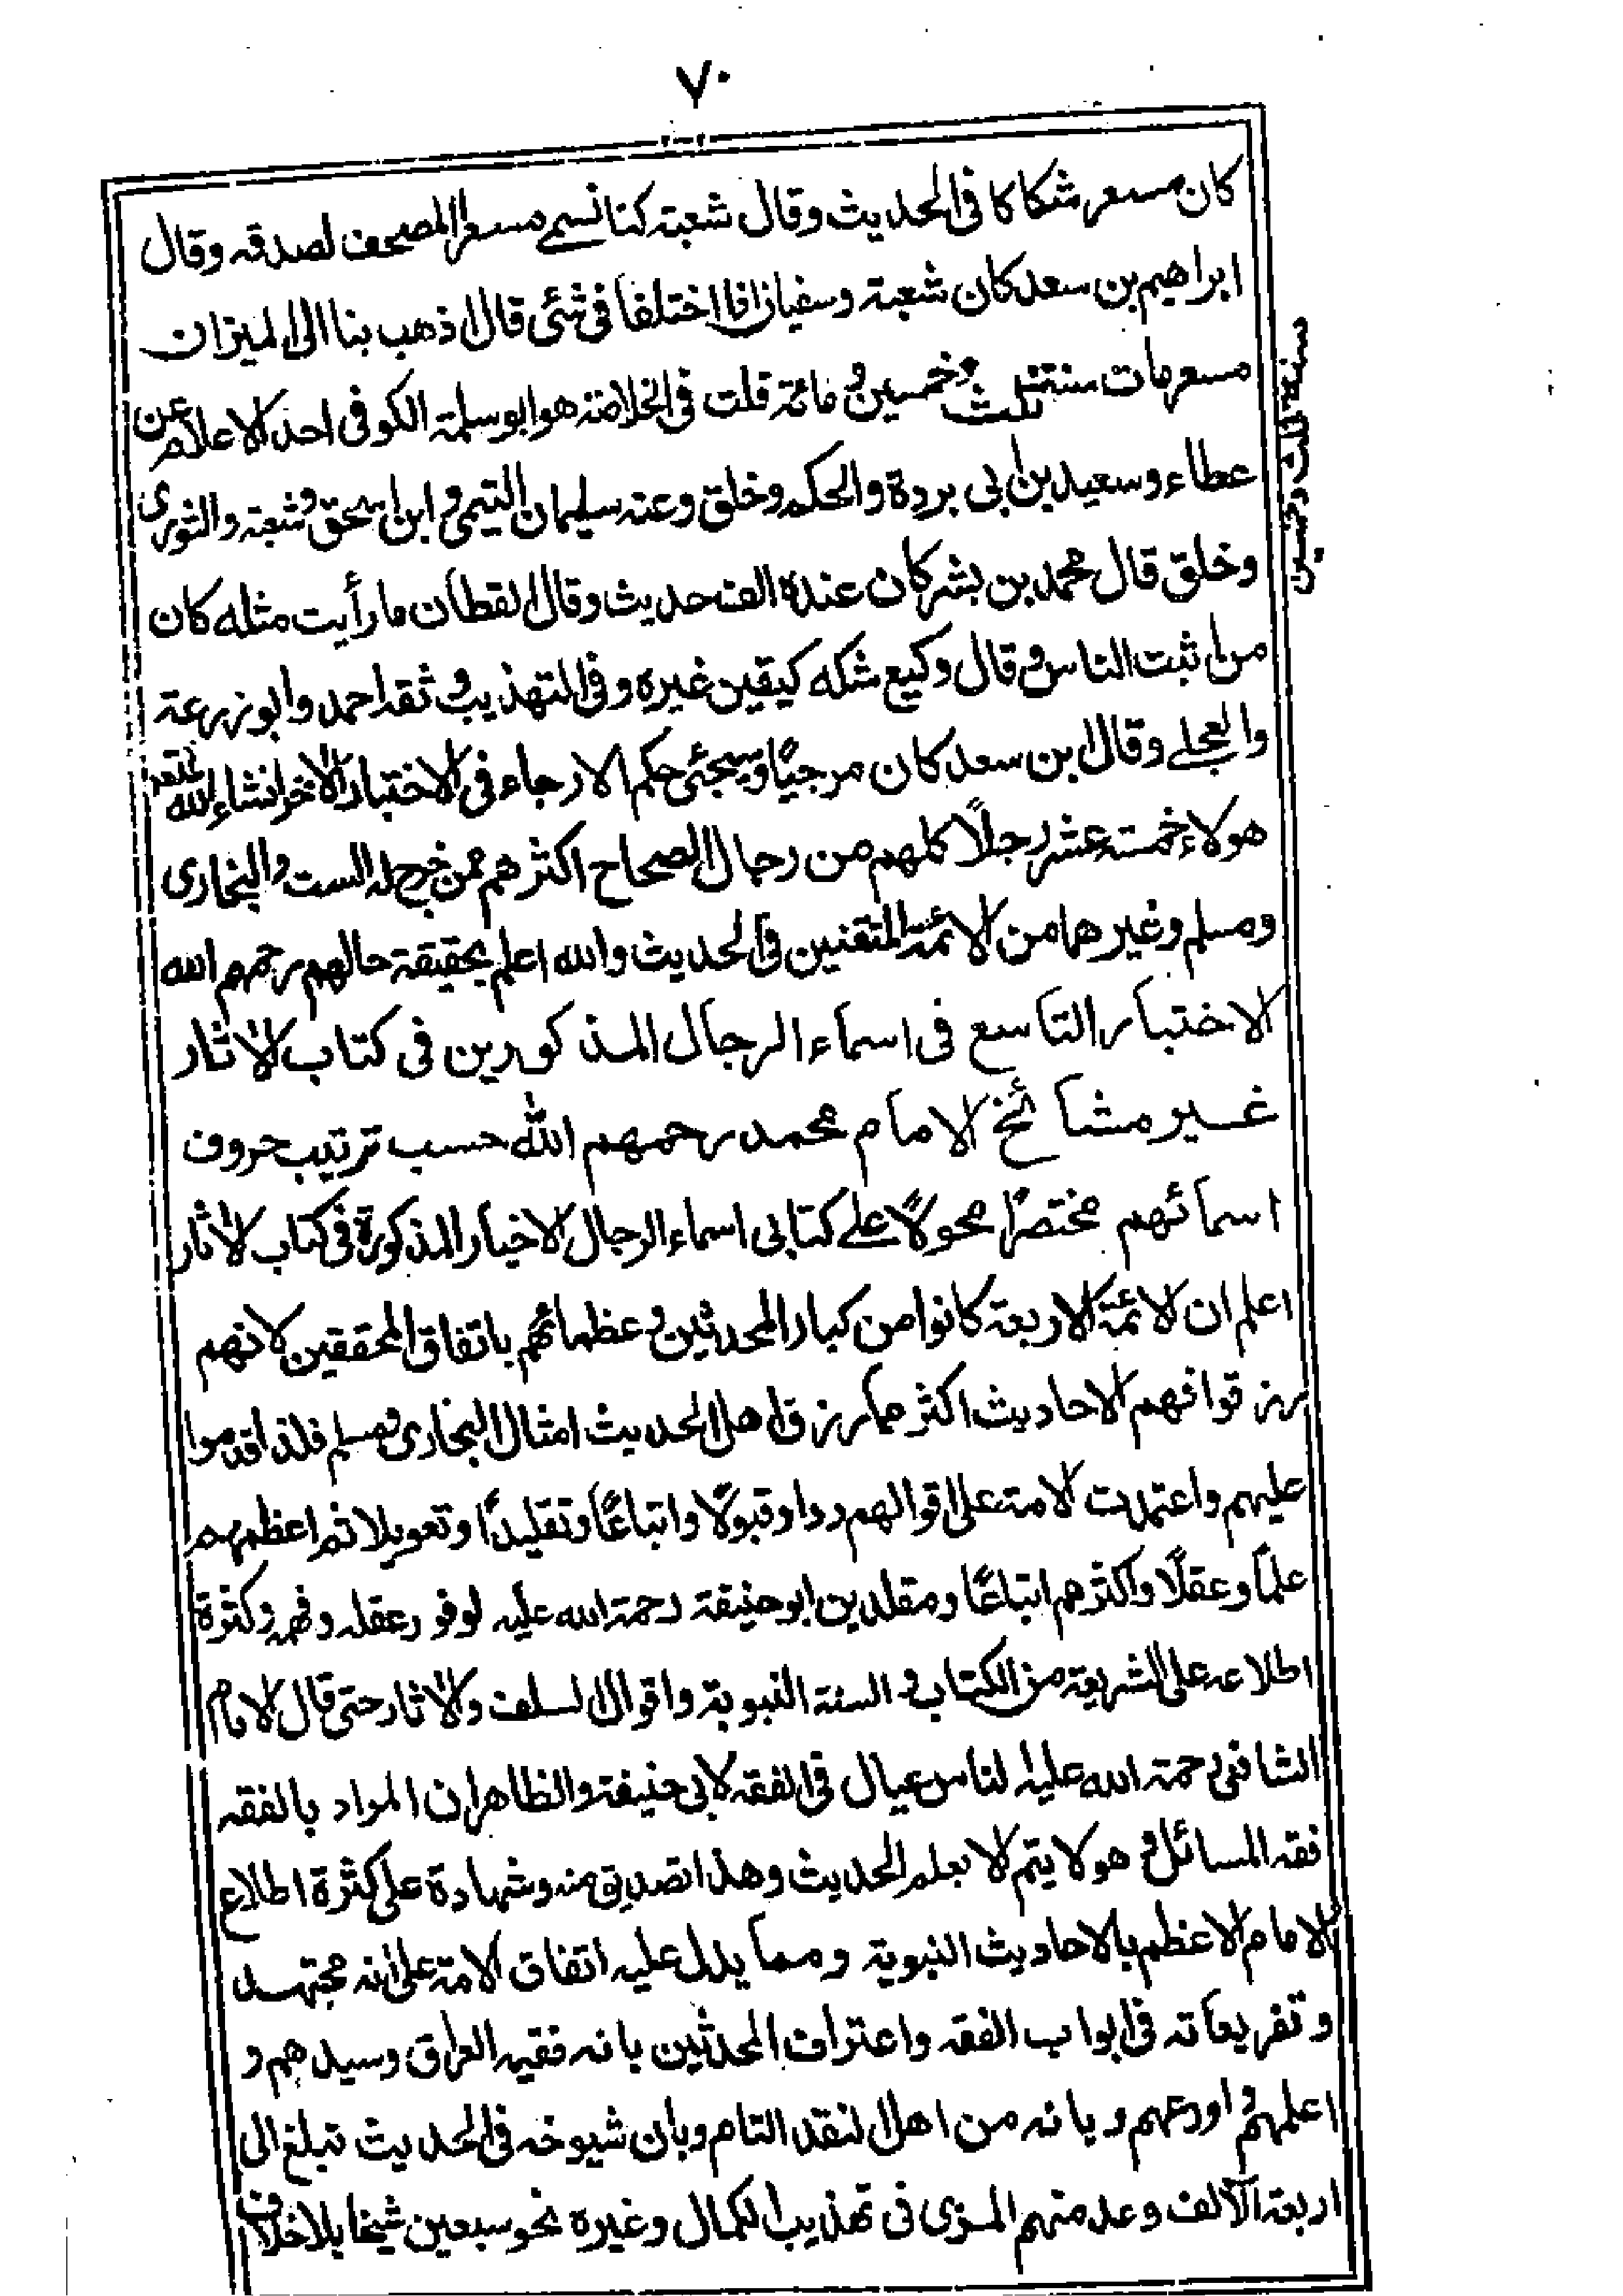 ٧٠
كان مسعر شكاكا فى الحديث وقال شعبة كنا نسمى مسعر المصحف لصدقه وقال
ابراهيم بن سعد كان شعبة وسفيان اذا اختلفا فى شئى قال اذهب بنا الى الميزان
مسعر مات سنة ثلث وخمسين و مائة قلت فى الخلاصة هو ابو سلمة الكوفى احد الاعلام عن
عطاء وسعيد بن ابى بردة والحكم وخلق وعنه سليمان التيمى و ابن اسحق وشعبة والثورى
وخلق قال محمد بن بشر كان عنده الف حديث وقال القطان ما رأيت مثله كان
من اثبت الناس وقال وكيع شكه كيقين غيره وفى التهذيب وثقه احمد وابو زرعة
والعجلے وقال ابن سعد كان مرجيًا وسيجئى حكم الارجاء فى الاختبار الاخر انشاء الله تعه
هولاء خمسة عشر رجلاً كلهم من رجال الصحاح اكثرهم ممن خرج له الست والبخارى
ومسلم وغيرهما من الائمة المتقنين فى الحديث والله اعلم بحقيقة حالهم رحمهم الله
الاختبار التاسع فى اسماء الرجال المذكورين فى كتاب الاثار
غير مشائخ الامام محمد رحمهم الله حسب ترتيب حروف
اسمائهم مختصرًا محولاً علے كتابى اسماء الرجال الاخيار المذكورة فى كتاب الاثار
اعلم ان الائمة الاربعة كانوا من كبار المحدثين وعظمائهم باتفاق المحققين لانهم
رزقوا فهم الاحاديث اكثر مما رزق اهل الحديث امثال البخارى ومسلم فلذا قدموا
عليهم واعتمدت الامة على اقوالهم ردا وقبولًا واتباعًا وتقليدًا وتعويلا ثم اعظمهم
علمًا وعقلًا واكثرهم اتباعًا ومقلدين ابو حنيفة رحمة الله عليه لوفور عقله وفهمه وكثرة
اطلاعه على الشريعة من الكتاب والسنة النبوية واقوال السلف والاثار حتى قال الامام
الشافعى رحمة الله عليه الناس عيال فى الفقه لابى حنيفة والظاهر ان المراد بالفقه
فقه المسائل وهو لا يتم الا بعلم الحديث وهذا تصديق منه وشهادة على كثرة اطلاع
الامام الاعظم بالاحاديث النبوية ومما يدل عليه اتفاق الامة على انه مجتهد
وتفريعاته فى ابواب الفقه واعتراف المحدثين بانه فقيه العراق وسيدهم و
اعلمهم و اورعهم وبانه من اهل النقد التام وبان شيوخه فى الحديث تبلغ الى
اربعة الآلف وعد منهم المزى فى تهذيب الكمال وغيره نحو سبعين شيخا بلا خلاف
سنة ثلث وخمسين